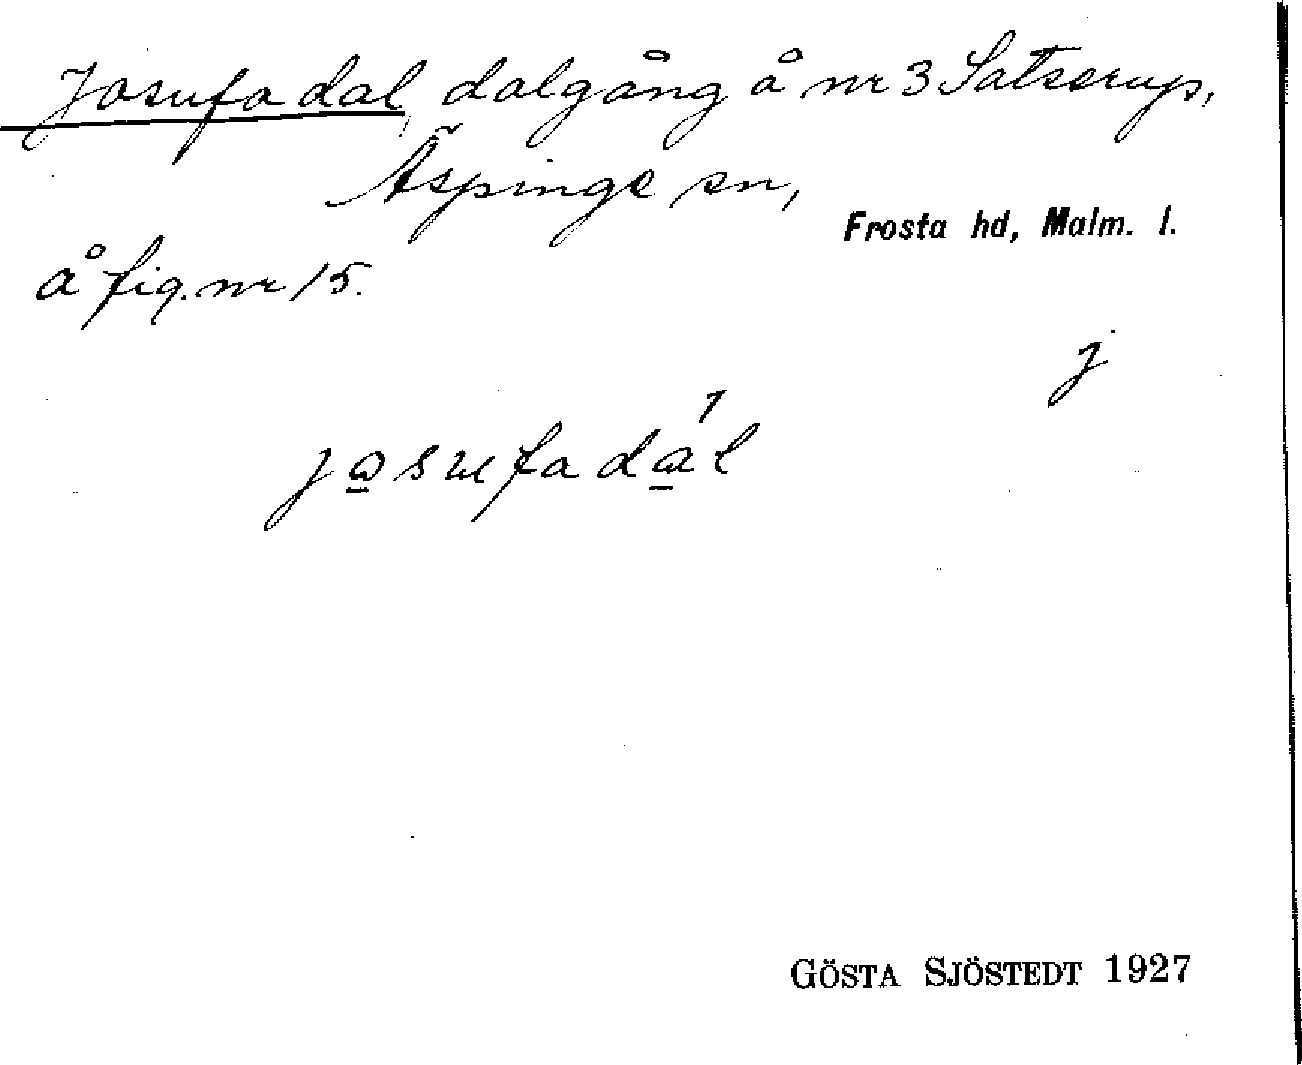 Josufadal, dalgång å nr 3 Satserup,
Äspinge sn,
Frosta hd, Malm. l.
å fig. nr 15.
j
josufadal
GÖSTA SJÖSTEDT 1927